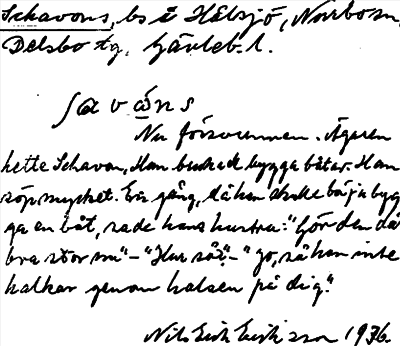 Schavons, bs i Hålsjö, Norrbo sn,
Delsbo tg. Gävleb. l.
ʃavóns
Nu försvunnen. Ägaren
hette Schavon. Han brukade bygga båtar. Han
söp mycket. En gång, då han skulle börja byg
ga en båt, sade hans hustru: "Gör den då
bra stor nu" – "Hur så?" – "Jo, så han inte
halkar genom halsen på dig."
Nils Erik Eriksson 1936.